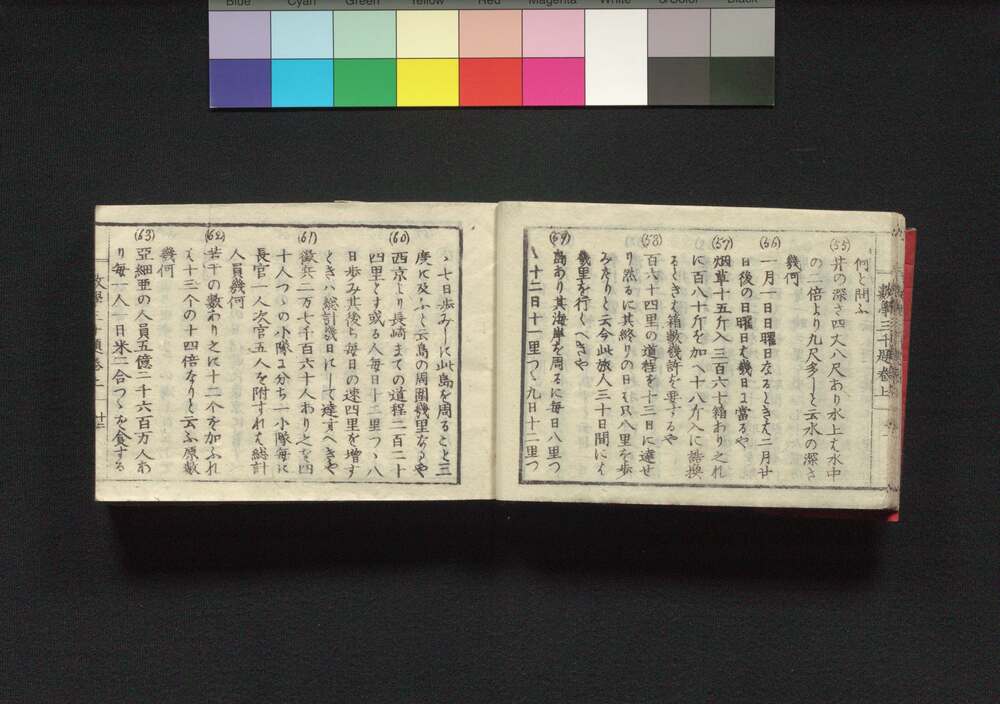 Blue Cyan Green Yellow Red Magenta White 3/Color Black
數學三千題卷上
何と問ふ
(55)
井の深さ四丈八尺あり水上は水中
の二倍より九尺多しと云水の深さ
幾何
(56)
一月一日日曜日なるときは二月廿
日後の日曜日は幾日に當るや
(57)
烟草十五斤入三百六十箱わり之れ
に百八十斤を加へ十八斤入に詰換
るときは箱數幾許を要するや
(58)
百六十四里の道程を十三日に達せ
り然るに其終りの日は只八里を歩
みたりと云今此旅人三十日間には
幾里を行くべきや
(59)
島あり其海岸を周るに毎日八里つ
ゝ十二日十一里つゝ九日十二里つ
ゝ七日歩みしに此島を周ること三
度に及ふと云島の周圍幾里なるや
(60)
西京より長崎まての道程二百二十
四里とす或る人毎日十二里つゝ八
日歩み其後ち毎日の速四里を增す
ときハ總計幾日にして達すへきや
(61)
徵兵二万七千百六十人わり之を四
十人つゝの小隊に分ち一小隊每に
長官一人次官五人を附すれは總計
人員幾何
(62)
若干の數わり之に十二个を加ふれ
は十三个の十四倍なりと云ふ原數
幾何
(63)
亞細亜の人員五億二千六百万人わ
り每一人一日米二合つゝを食する